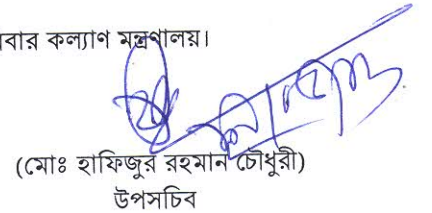 বার কল্যাণ মন্ত্রণালয়।
(মোঃ হাফিজুর রহমান চৌধুরী)
উপসচিব